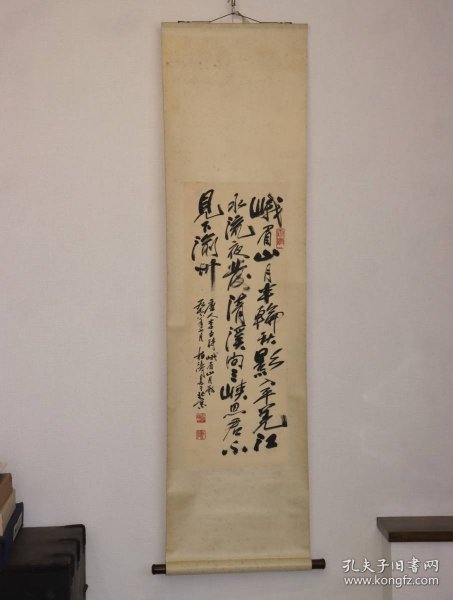 峨眉山月半轮秋影入平羌江
水流夜发清溪向三峡思君不
見下渝州
唐人李白诗峨眉山月歌
孔夫子旧书网
www.kongfz.com